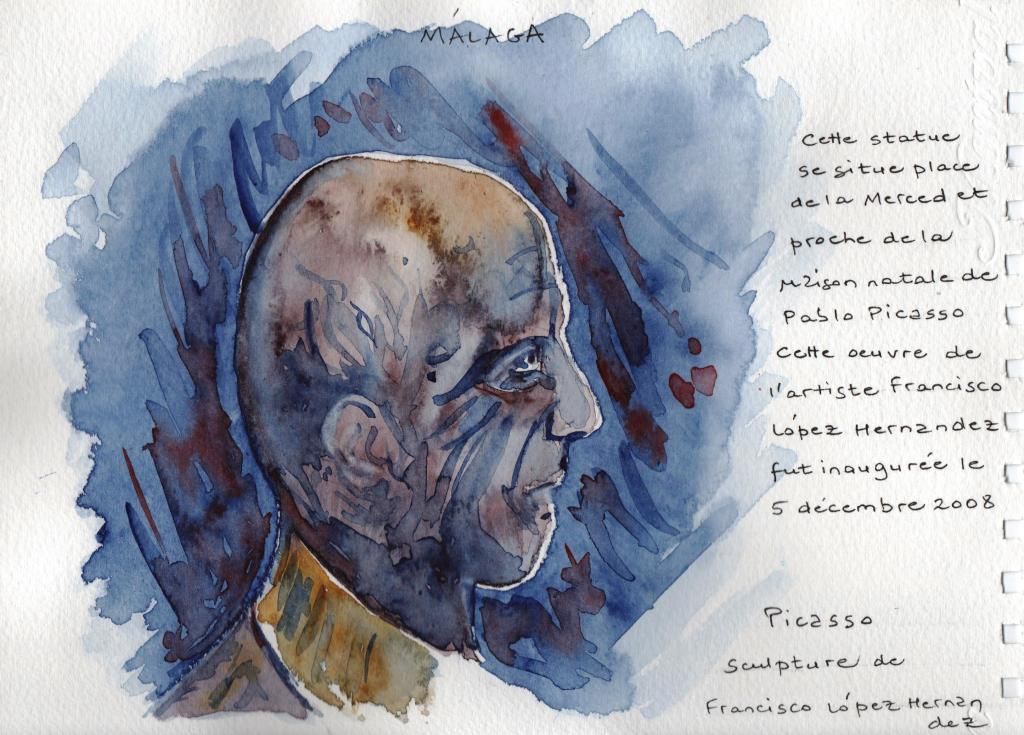 MÁLAGA
Cette statue
se situe place
de la Merced et
proche de la
maison natale de
Pablo Picasso
Cette oeuvre de
l'artiste Francisco
López Hernandez
fut inaugurée le
5 décembre 2008
Picasso
Sculpture de
Francisco López Hernan
dez